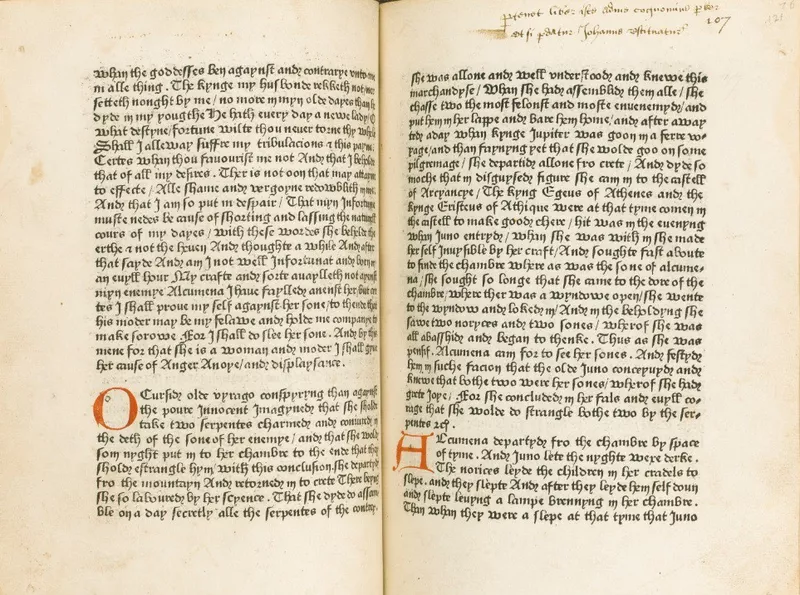 whan the goddesses ben agaynst and contrarye vnto me
in alle thing. The kynge my husbonde rekketh not/ner
setteth nonght by me / no more in myn olde dayes than he
dyde in my yougthe He hath every day a newe lady/O
what destyne/fortune wilte thou never torne thy whele
Shall I alleway suffre my tribulacions & this payne
Certes whan thou favourist me not And that I beholde
that of all my desires. Ther is not oon that may attayne
to effecte / Alle shame and vergoyne redowblith in me.
And that I am so put in despair / That myn Infortune
muste nedes be cause of shorting and lassing the naturell
cours of my dayes / with these wordes she behelde the
erthe & not the heven And thoughte a while And after
that sayde And am I not well Infortunat and born in
an euyll hour My crafte and sorte auaylleth not ayenst
myn enemye Alcumena I have faylledy anenst her/but
tes I shall prove my self agaynst her sone/to thende that
his moder may be my felawe and holde me companye to
make sorowe For I shall do slee her sone. And by this
mene for that she is a woman and moder I shall gyue
her cause of Anger Anoye/and displaysance.
O Cursidy olde vyrago conspyryng than agaynst
the poure Innocent Imagynedy that she sholde
take two serpentes charmedy and coniuredy in
the deth of the sone of her enemye / and that she wold
som nyght put in to her chambre to the ende that they
sholdy estrangle hym with this conclusion.she departyd
fro the mountayn And retornedy in to crete There beyng
she so labouredy by her scyence. That she dyde do assam
ble on a day secretly alle the serpentes of the contrey.
107
she was allone and well vnderstoody and knewe this
marchandyse / Whan she hady assemblidy them alle / she
chasse two the most felonst and moste enuenemydy/and
put hem in her lappe and bare hem home/and after away
tedy aday whan kynge Jupiter was goon in a ferre vo-
yage/and than faynyng yet that she wolde goo on some
pilgremage / she departidy allone fro crete / And dyde so
moche that in disguysedy figure she cam in to the castell
of Arcyancye / The kyng Egeus of Athenes and the
kynge Eristeus of Athique were at that tyme comen in
the castell to make goody chere / hit was in the euenyng
whan Juno entrydy / whan she was with in she made
her self Inuysible by her craft/And sought fast aboute
to finde the chambre where as was the sone of alcume-
na / she sought so longe that she came to the dore of the
chambre/where ther was a wyndowe open/she wente
to the wyndowe and lokedy in/And in the beholdyng she
sawe two noryces and two sones / wherof she was
all abasshidy and began to thenke. Thus as she was
pensif. Alcumena cam for to see her sones. And festydy
hem in suche facion that the olde Juno conceyuydy and
knewe that bothe two were her sones/wherof she hady
grete Joye / For she concludedy in her fals and euyll co-
rage that she wolde do strangle bothe two by the ser-
pentes &c.
ALcumena departydy fro the chambre by space
of tyme. And Juno lete the nyghte wexe derke.
The norices leyde the children in her cradels to
slepe. and they slepte And after they leyde hem self doun
and slepte leuyng a lampe brennyng in her chambre.
Than whan they were a slepe at that tyme that Juno